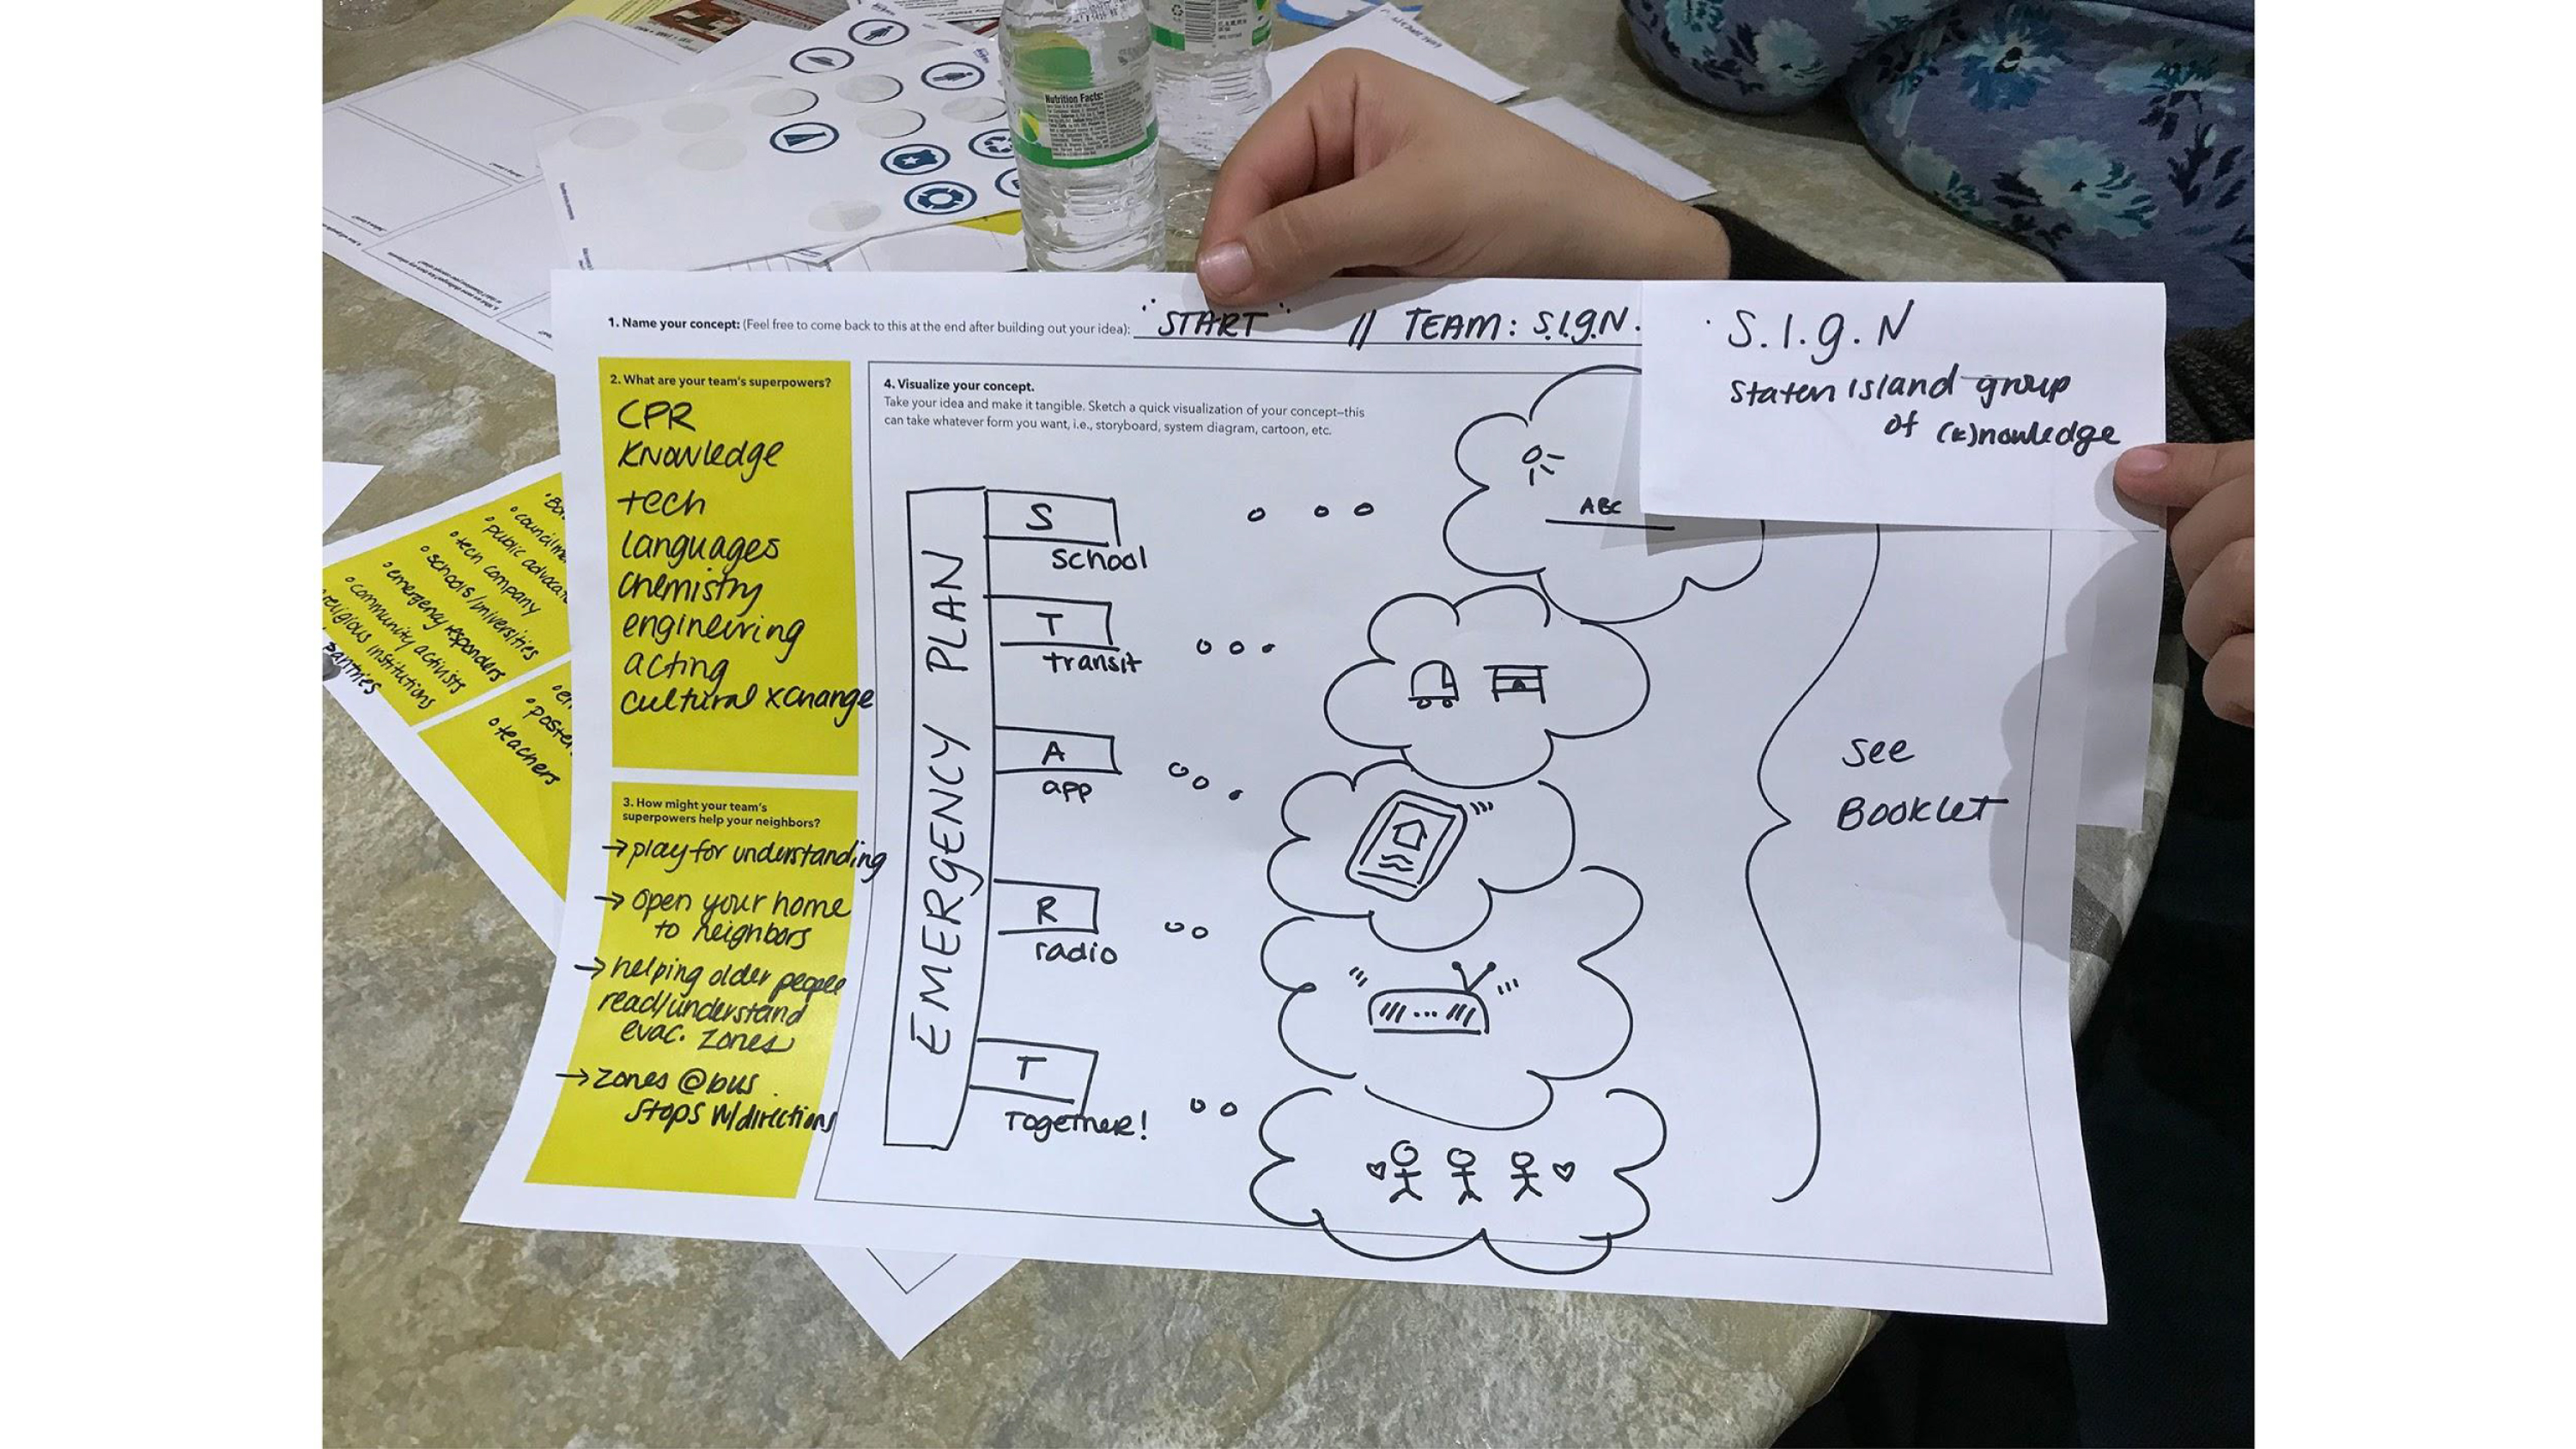 Nutrition Facts:
1. Name your concept: (Feel free to come back to this at the end after building out your idea): START // TEAM: S.I.g.N.
S.I.g.N
Staten Island group
of (k)nowledge
2. What are your team's superpowers?
CPR
Knowledge
tech
languages
chemistry
engineering
acting
cultural xchange
3. How might your team's
superpowers help your neighbors?
→ play for understanding
→ open your home
to neighbors
→ helping older people
read/understand
evac. zones
→ zones @ bus
stops w/directions
4. Visualize your concept.
Take your idea and make it tangible. Sketch a quick visualization of your concept—this
can take whatever form you want, i.e., storyboard, system diagram, cartoon, etc.
EMERGENCY PLAN
S
school
T
transit
A
app
R
radio
T
Together!
ABC
see
Booklet
public advocat
tech company
schools/universities
emergency responders
community activists
religious institutions
pantries
teachers